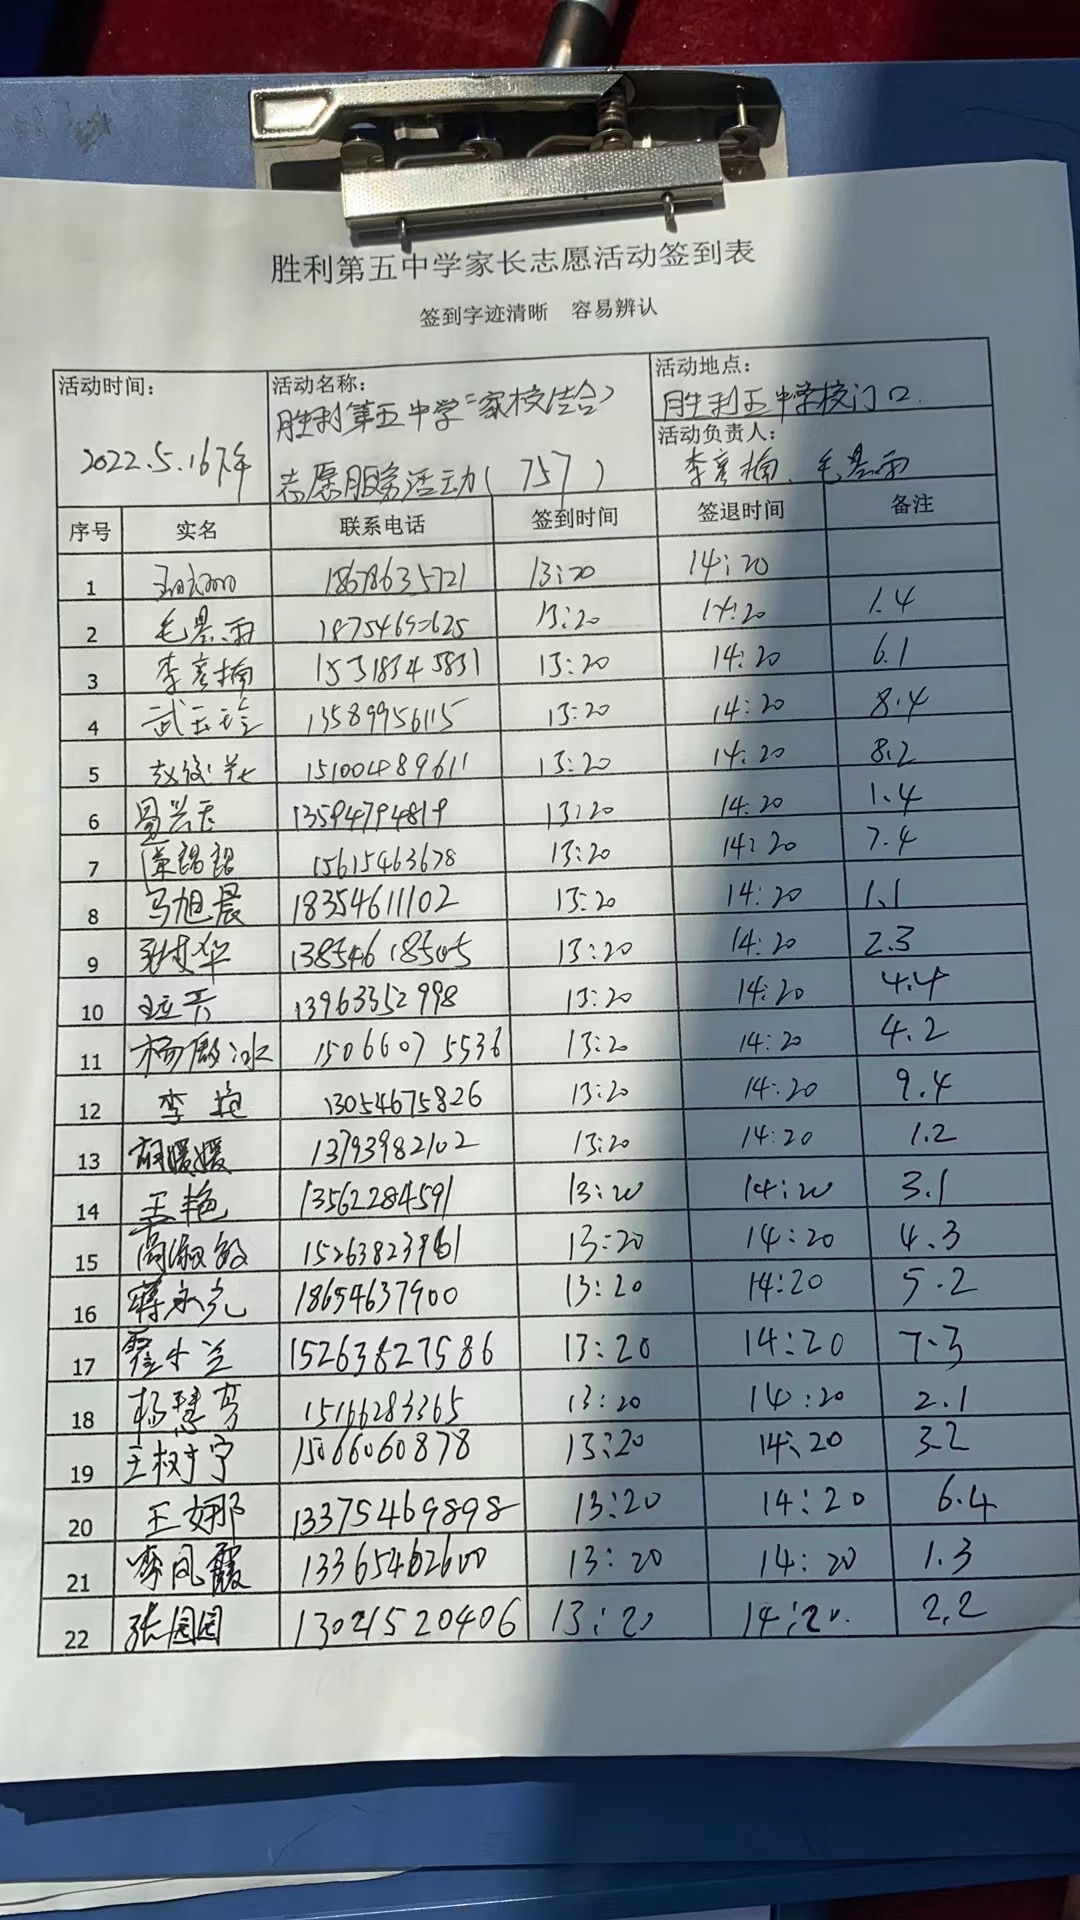 胜利第五中学家长志愿活动签到表
签到字迹清晰 容易辨认
活动时间: 2022.5.16下午
活动名称: 胜利第五中学"家校结合"
志愿服务活动( 757 )
活动地点: 胜利五中学校门口
活动负责人: 李彦楠、毛墨雨
序号 实名 联系电话 签到时间 签退时间 备注
1 18678635721 13:20 14:20
2 毛墨雨 13:20 14:20 1.4
3 李彦楠 15318345831 13:20 14:20 6.1
4 武玉玲 13589956115 13:20 14:20 8.4
5 15100489611 13:20 14:20 8.2
6 13594794819 13:20 14:20 1.4
7 15615463678 13:20 14:20 7.4
8 马旭晨 18354611102 13:20 14:20 1.1
9 13854618505 13:20 14:20 2.3
10 13963352998 13:20 14:20 4.4
11 15066075536 13:20 14:20 4.2
12 李 13054675826 13:20 14:20 9.4
13 胡媛媛 13793982102 13:20 14:20 1.2
14 王艳 13562284591 13:20 14:20 3.1
15 高淑敏 13:20 14:20 4.3
16 蒋永亮 18654637900 13:20 14:20 5.2
17 霍小兰 15263827586 13:20 14:20 7.3
18 杨慧芳 15166283365 13:20 14:20 2.1
19 王树宁 15066060878 13:20 14:20 3.2
20 王娜 13375469898 13:20 14:20 6.4
21 李凤霞 13365462600 13:20 14:20 1.3
22 张园园 13021520406 13:20 14:20. 2.2